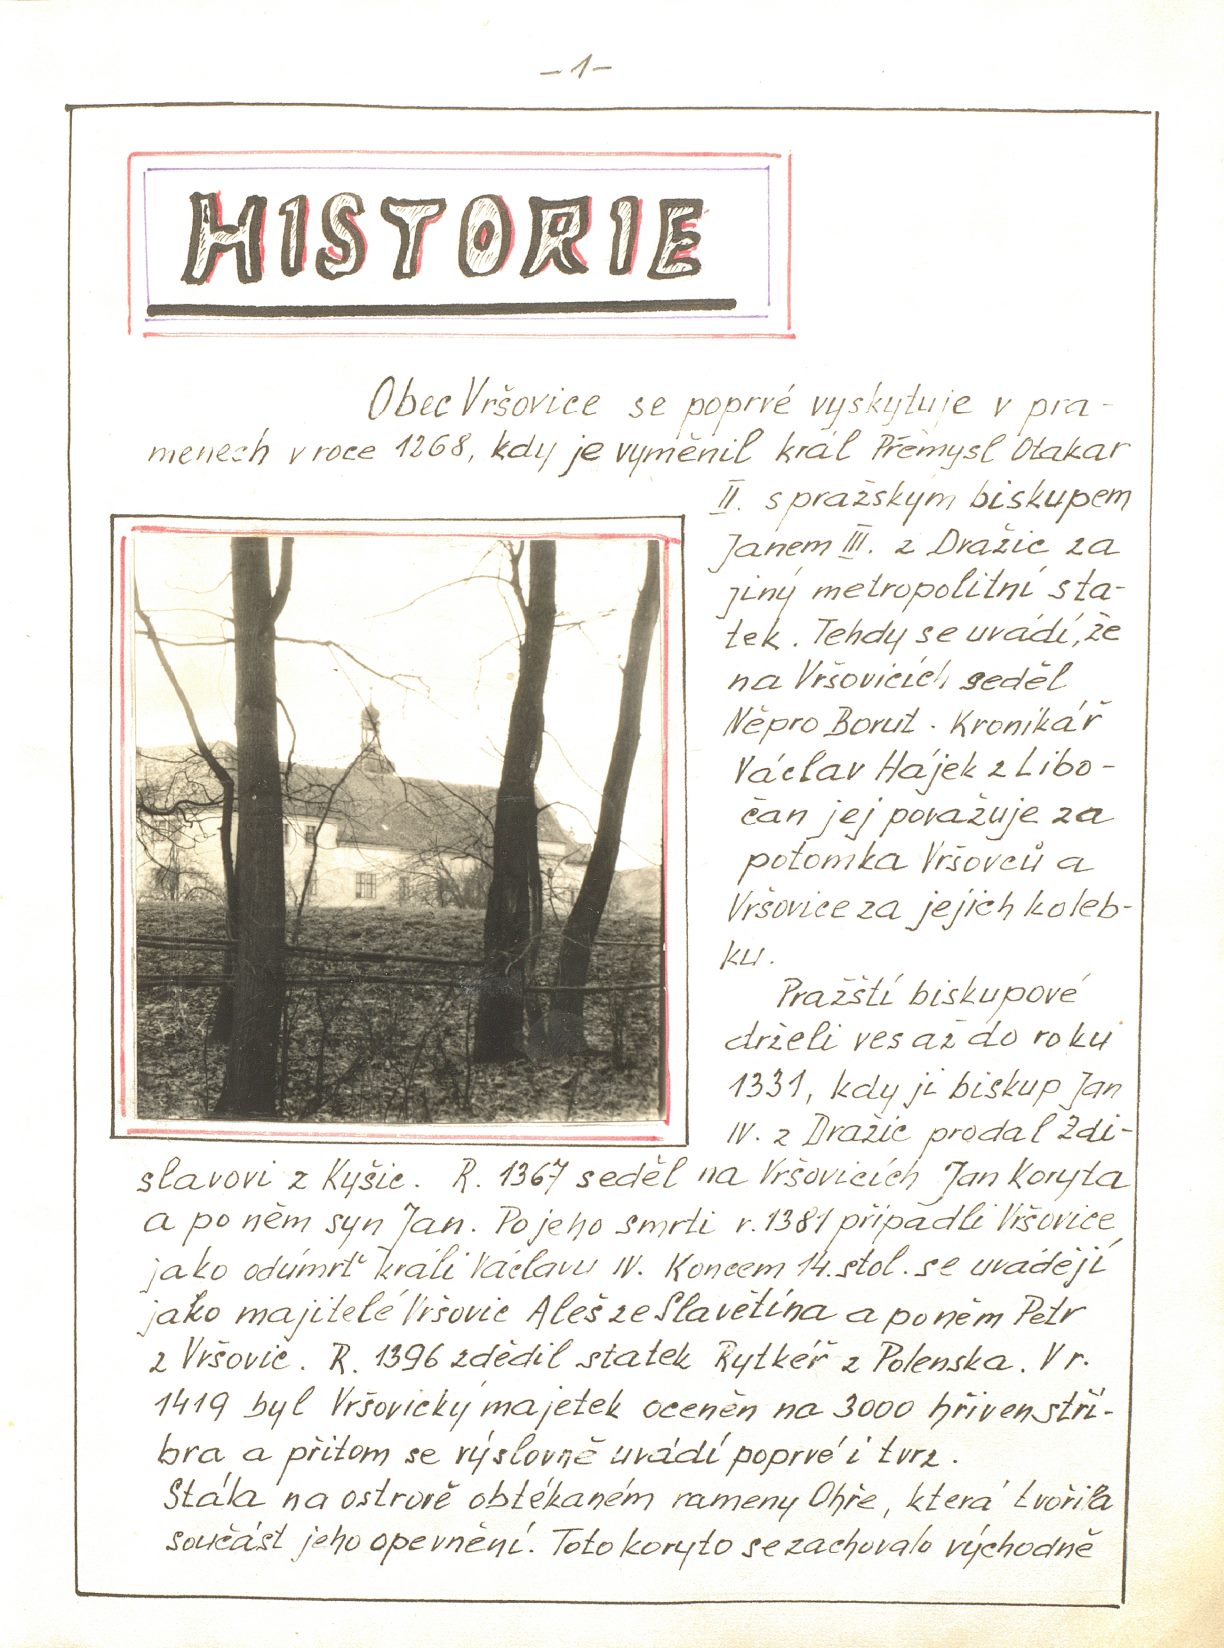 -1-
HISTORIE
Obec Vršovice se poprvé vyskytuje v pra-
menech v roce 1268, kdy je vyměnil král Přemysl Otakar
II. s pražským biskupem
Janem III. z Dražic za
jiný metropolitní sta-
tek. Tehdy se uvádí, že
na Vršovicích seděl
Něpro Borut. Kronikář
Václav Hájek z Libo-
čan jej považuje za
potomka Vršovců a
Vršovice za jejich koleb-
ku.
Pražští biskupové
drželi ves až do roku
1331, kdy ji biskup Jan
IV. z Dražic prodal Zdi-
slavovi z Kyšic. R. 1367 seděl na Vršovicích Jan Koryta
a po něm syn Jan. Po jeho smrti r. 1381 připadli Vršovice
jako odúmrť králi Václavu IV. Koncem 14. stol. se uvádějí
jako majitelé Vršovic Aleš ze Slavětína a po něm Petr
z Vršovic. R. 1396 zdědil statek Rytkéř z Polenska. V r.
1419 byl Vršovický majetek oceněn na 3000 hřiven stří-
bra a přitom se výslovně uvádí poprvé i tvrz.
Stála na ostrově obtékaném rameny Ohře, která tvořila
součást jeho opevnění. Toto koryto se zachovalo východně